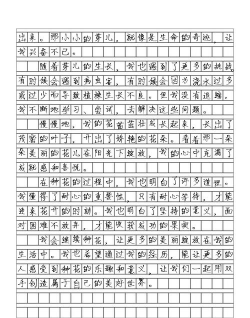 出来。那小小的芽儿，就像是生命的奇迹，让
我兴奋不已。
随着芽儿的生长，我也遇到了更多的挑战
有时候会遇到病虫害，有时候会因为浇水过多
或过少而导致植株生长不良。但我没有退缩，
我不断地学习、尝试，去解决这些问题。
慢慢地，我的花苗茁壮成长起来，长出了
茂密的叶子，开出了娇艳的花朵。看着那一朵
朵美丽的花儿在阳光下绽放，我的心中充满了
成就感和喜悦。
在种花的过程中，我也明白了许多道理。
我懂得了耐心的重要性，只有耐心等待，才能
迎来花开的时刻。我也明白了坚持的意义，面
对困难不放弃，才能收获成功的果实。
我会继续种花，让更多的美丽绽放在我的
生活中。我也希望通过我的经历，能让更多的
人感受到种花的乐趣和意义。让我们一起用双
手创造属于自己的美好世界。